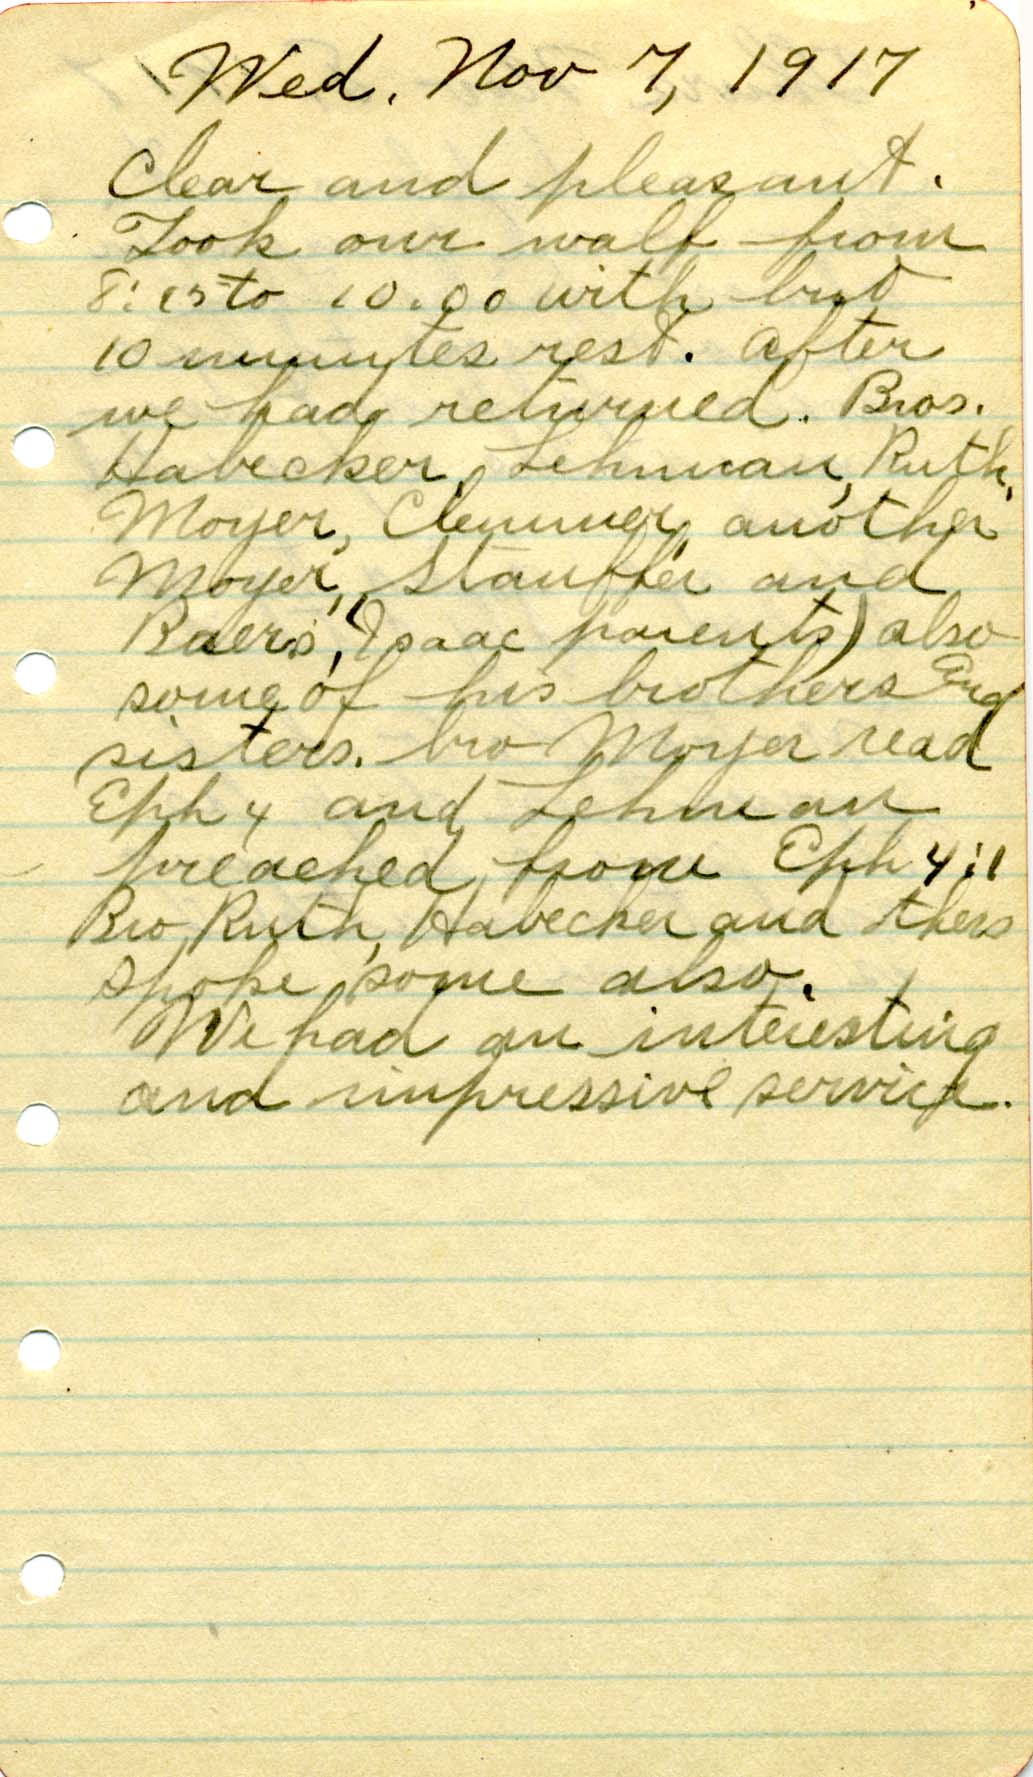 Wed. Nov 7, 1917
Clear and pleasant.
Took our walk from
8:15 to 10.00 with but
10 minutes rest. After
we had returned. Bros.
Habecker, Lehman, Ruth,
Moyer, Clemmer, another
Moyer, Stauffer and
Baers, (Isaac parents) also
some of his brothers and
sisters. bro Moyer read
Eph 4 and Lehman
preached from Eph 4:1
Bro Ruth, Habecker and thers
spoke some also.
We had an interesting
and impressive service.